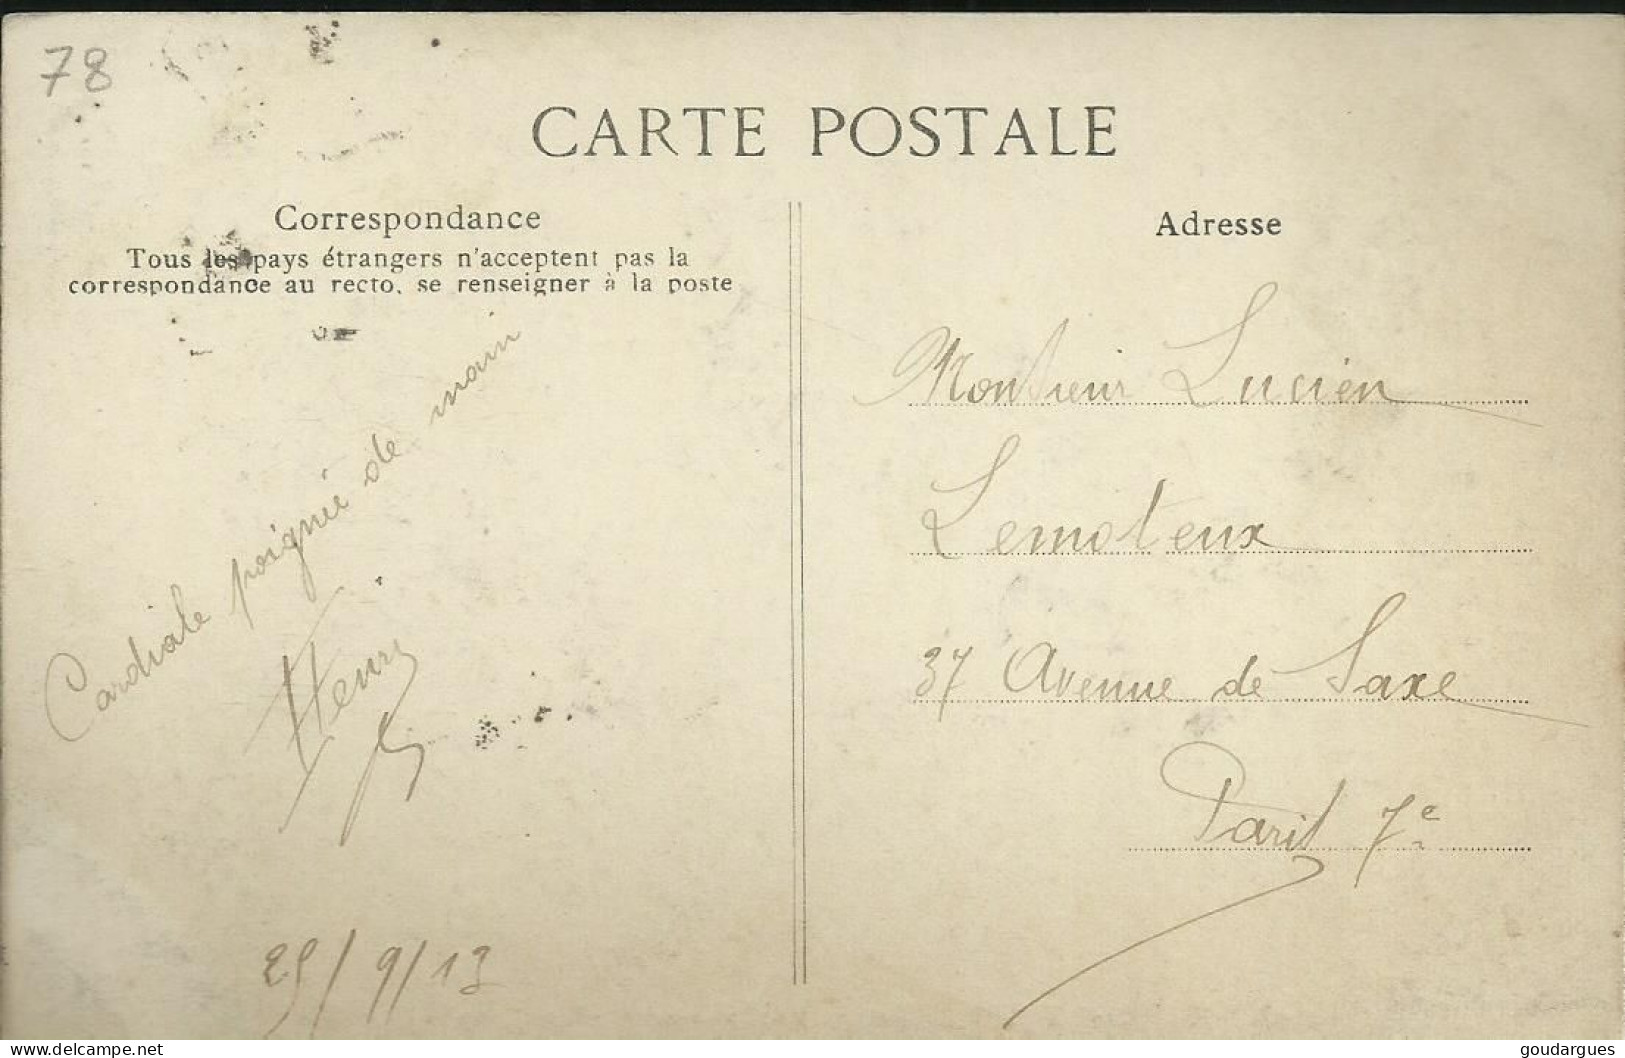 78
CARTE POSTALE
Correspondance
Tous les pays étrangers n'acceptent pas la
correspondance au recto, se renseigner à la poste
Cordiale poignée de main
Henri
25/9/13
Adresse
Monsieur Lucien
Lemoteux
37 Avenue de Saxe
Paris 7e
www.delcampe.net
goudargues